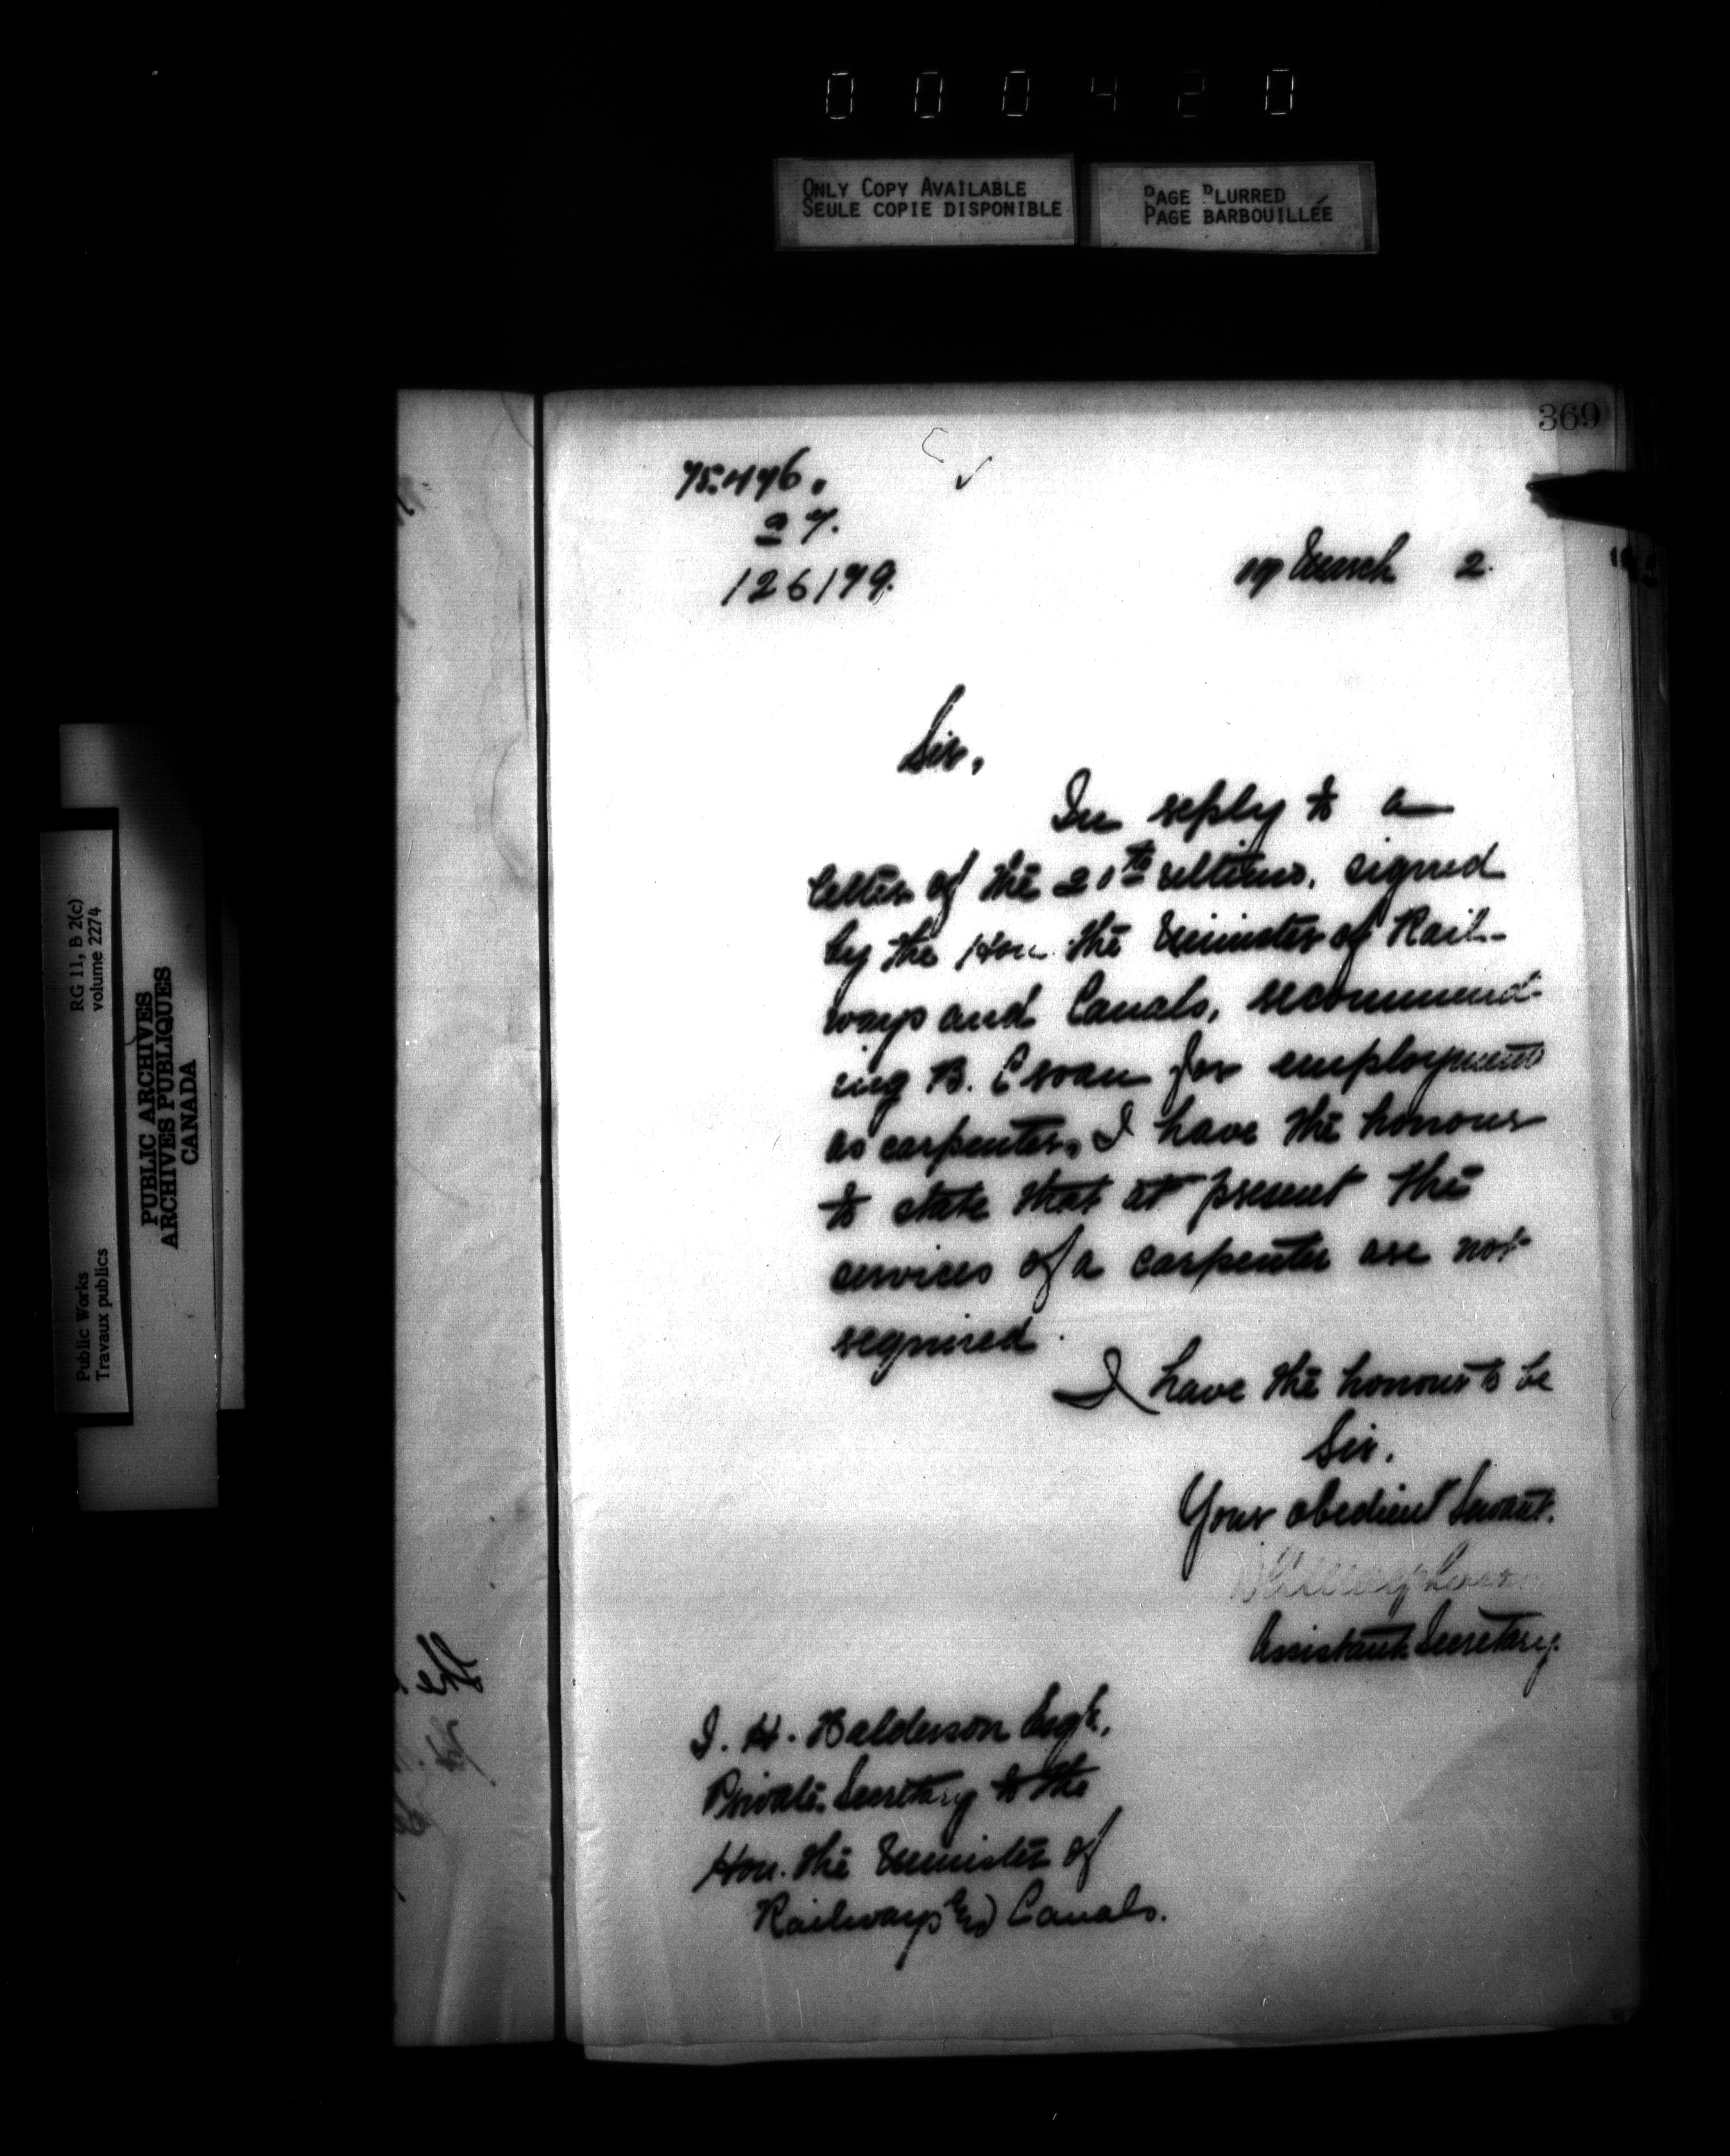 000420
ONLY COPY AVAILABLE
SEULE COPIE DISPONIBLE
PAGE BLURRED
PAGE BARBOUILLÉE
369
75.476.
a 7.
126179.
March 2.
Sir,
In reply to a
letter of the 20th ultimo. signed
by the Hon. the Minister of Rail-
ways and Canals, recommend-
ing B. for employment
as carpenter, I have the honour
to state that at present the
services of a carpenter are not
required.
I have the honour to be
Sir.
Your obedient Servant.
Assistant Secretary.
H. Balderson Esqre,
Private Secretary to the
Hon. the Minister of
Railways and Canals.
RG 11, B 2(c)
volume 2274
PUBLIC ARCHIVES
ARCHIVES PUBLIQUES
CANADA
Public Works
Travaux publics